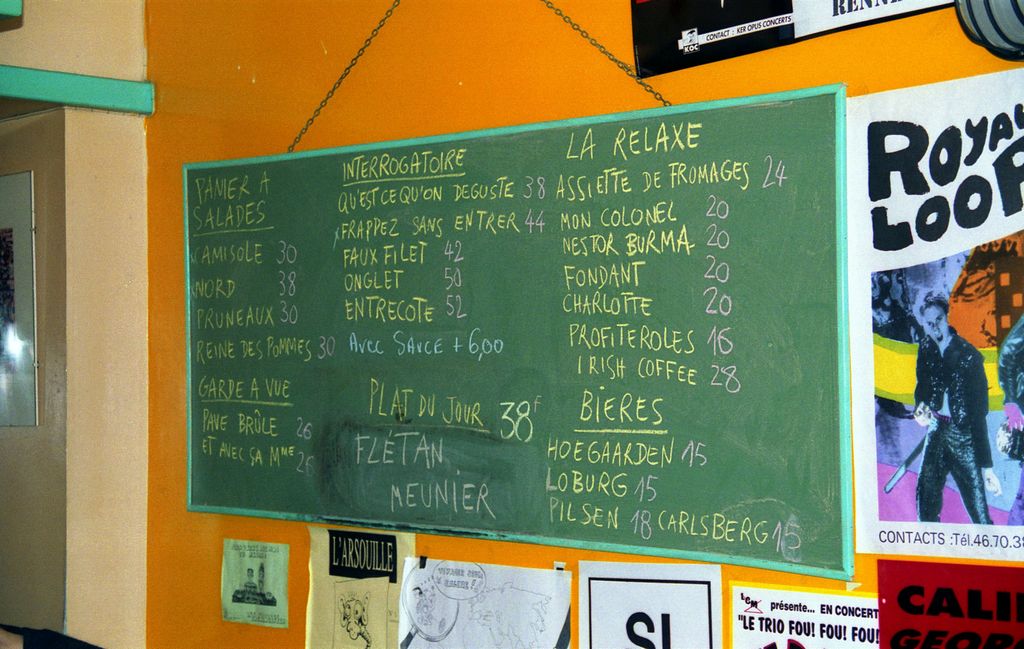 RENNE
CONTACT : KER OPUS CONCERTS
KOC
PANIER A
SALADES
CAMISOLE 30
NORD 38
PRUNEAUX 30
REINE DES POMMES 30
GARDE A VUE
PAVE BRÛLE 26
ET AVEC SA Mme 26
INTERROGATOIRE
QU'EST CE QU'ON DEGUSTE 38
FRAPPEZ SANS ENTRER 44
FAUX FILET 42
ONGLET 50
ENTRECOTE 52
AVEC SAUCE + 6,00
PLAT DU JOUR 38F
FLÉTAN
MEUNIER
LA RELAXE
ASSIETTE DE FROMAGES 24
MON COLONEL 20
NESTOR BURMA 20
FONDANT 20
CHARLOTTE 20
PROFITEROLES 16
IRISH COFFEE 28
BIERES
HOEGAARDEN 15
LOBURG 15
PILSEN 18 CARLSBERG 15
ROYAL
LOOP
CONTACTS :Tél.46.70.38
L'ARSOUILLE
SI
LCM présente... EN CONCERT
"LE TRIO FOU! FOU! FOU!
CALI
GEORG